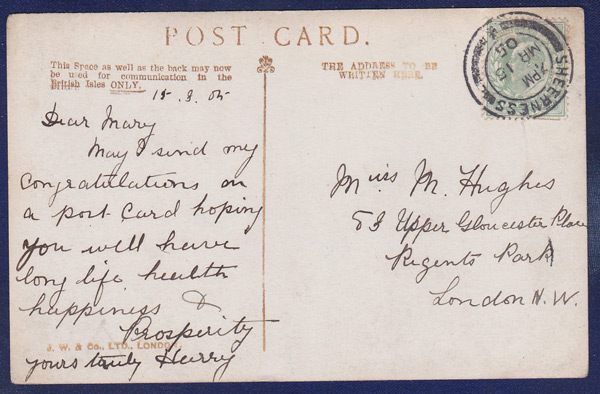 POST CARD.
This Space as well as the back may now
be used for communication in the
British Isles ONLY.
THE ADDRESS TO BE
WRITTEN HERE.
SHEERNESS
7 PM
MR 15
05
15.3.05
Dear Mary
May I send my
congratulations on
a post-card hoping
you will have
long life, health
happiness &
Prosperity
yours truly Harry
J. W. & Co., LTD., LONDON.
Miss M. Hughes
53 Upper Gloucester Place
Regents Park
London N.W.